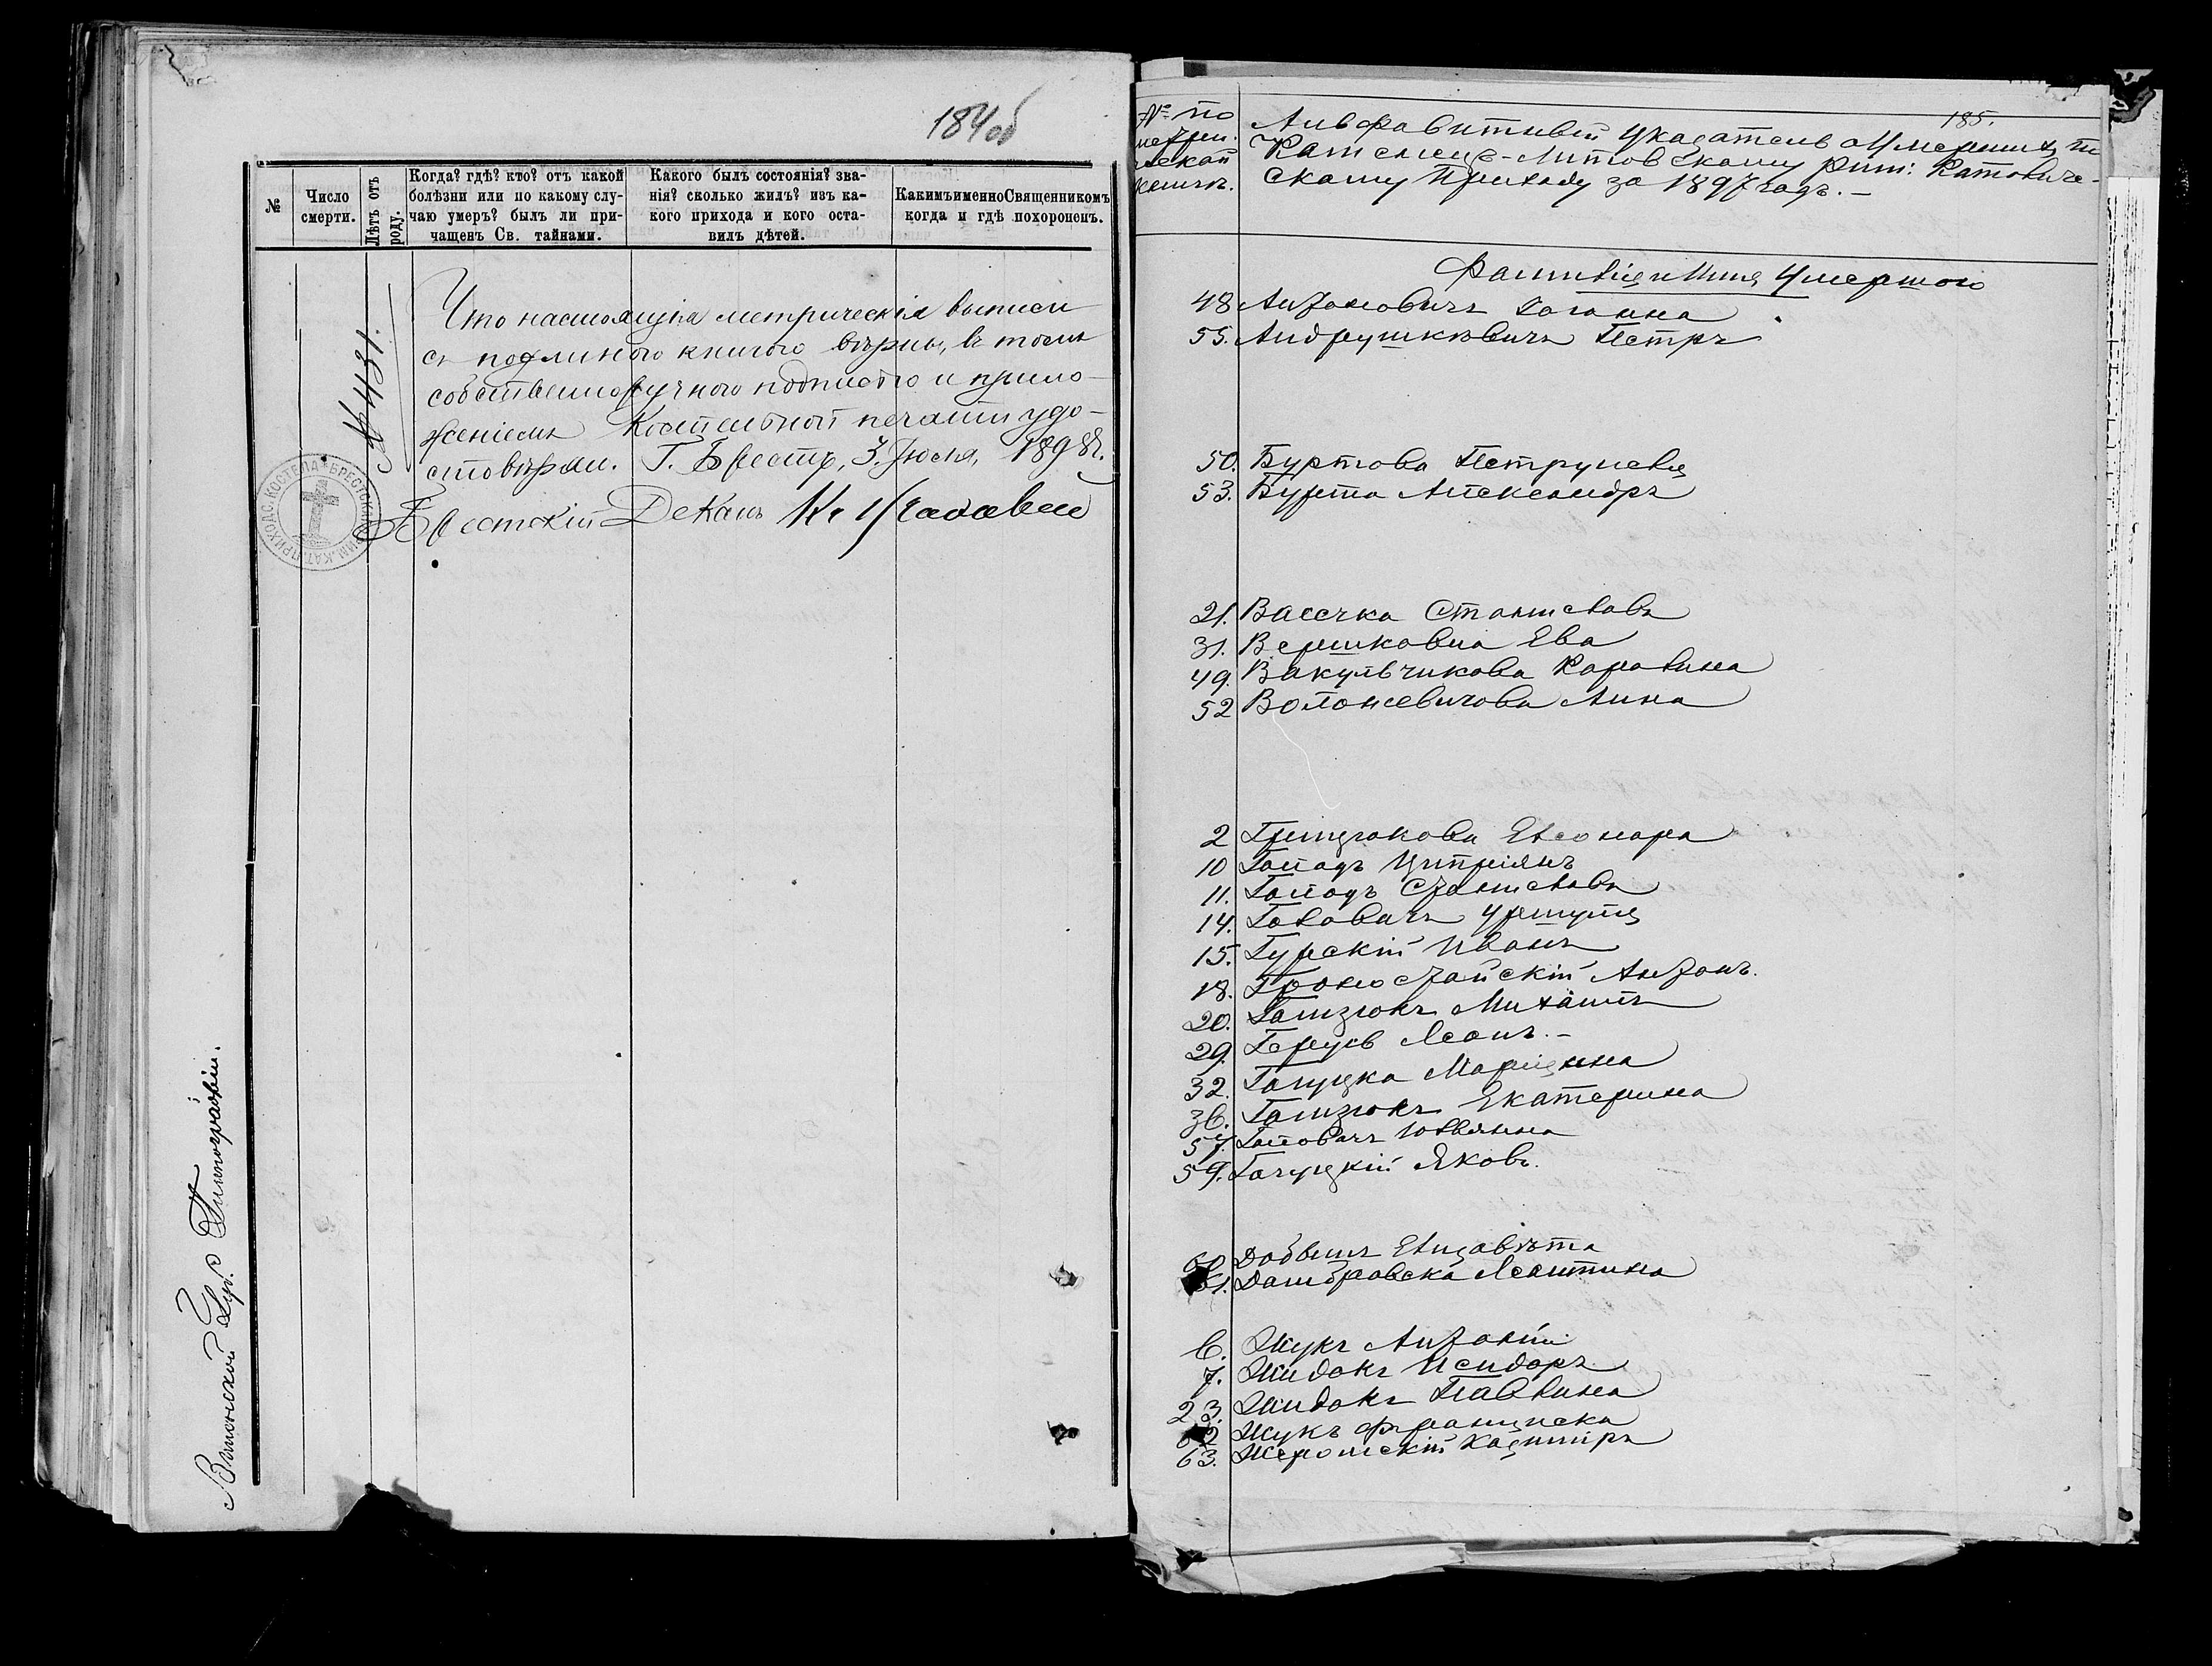 184 об
№
Число смерти.
Лѣтъ отъ роду.
Когда? гдѣ? кто? отъ какой
болѣзни или по какому слу-
чаю умеръ? былъ ли при-
чащенъ Св. тайнами.
Какого былъ состоянія? зва-
нія? сколько жилъ? изъ ка-
кого прихода и кого оста-
вилъ дѣтей.
Какимъ именно Священникомъ
когда и гдѣ похороненъ.
Что настоящія метрическія выписи
съ подлиною книгою вѣрны, въ томъ
собственоручною подписью и прило-
женіемъ Костельной печати удо-
стовѣряю. Г. Брестъ, 3. Іюля, 1898г.
Брестскій Деканъ Кс
№ 431.
БРЕСТСКАГО РИМ. КАТ. ПРИХОДС. КОСТЕЛА
Виленской Губ. Типографіи.
185.
№ по
метри-
ческой
Алфавитный указатель о Умершихъ по
Каменецъ-Литовскому Рим: Католиче-
скому Приходу за 1897 годъ. —
Фамилія и Имя Умершого
48 Антоновичъ Іоанна
55. Андрушкевичъ Петръ
50. Буртова Петрунеля
53. Бурта Александръ
21. Васечка Станиславъ
31. Вершковна Ева
49. Вакульчикова Каролина
52 Волонсевичова Анна
2 Грицукова Элеонора
10 Гападъ Ципріянъ
11. Гападъ Станиславъ
14. Головачъ Уршуля
15. Гурскій Иванъ
18. Троностайскій Антонъ.
20. Гамзюкъ Михаилъ
29. Геруь Леонъ. —
32. Гагуцка Маріанна
36. Гамзюкъ Екатерина
57. Юліянна
59. Гагуцкій Яковъ.
60 Довбышъ Елизавѣта
61. Домбровска Леонтина
6. Жукъ Антоній
7. Жидокъ Исидоръ
23. Жидокъ Павлина
62 Жукъ Франциска
63. Жеромскій Казиміръ